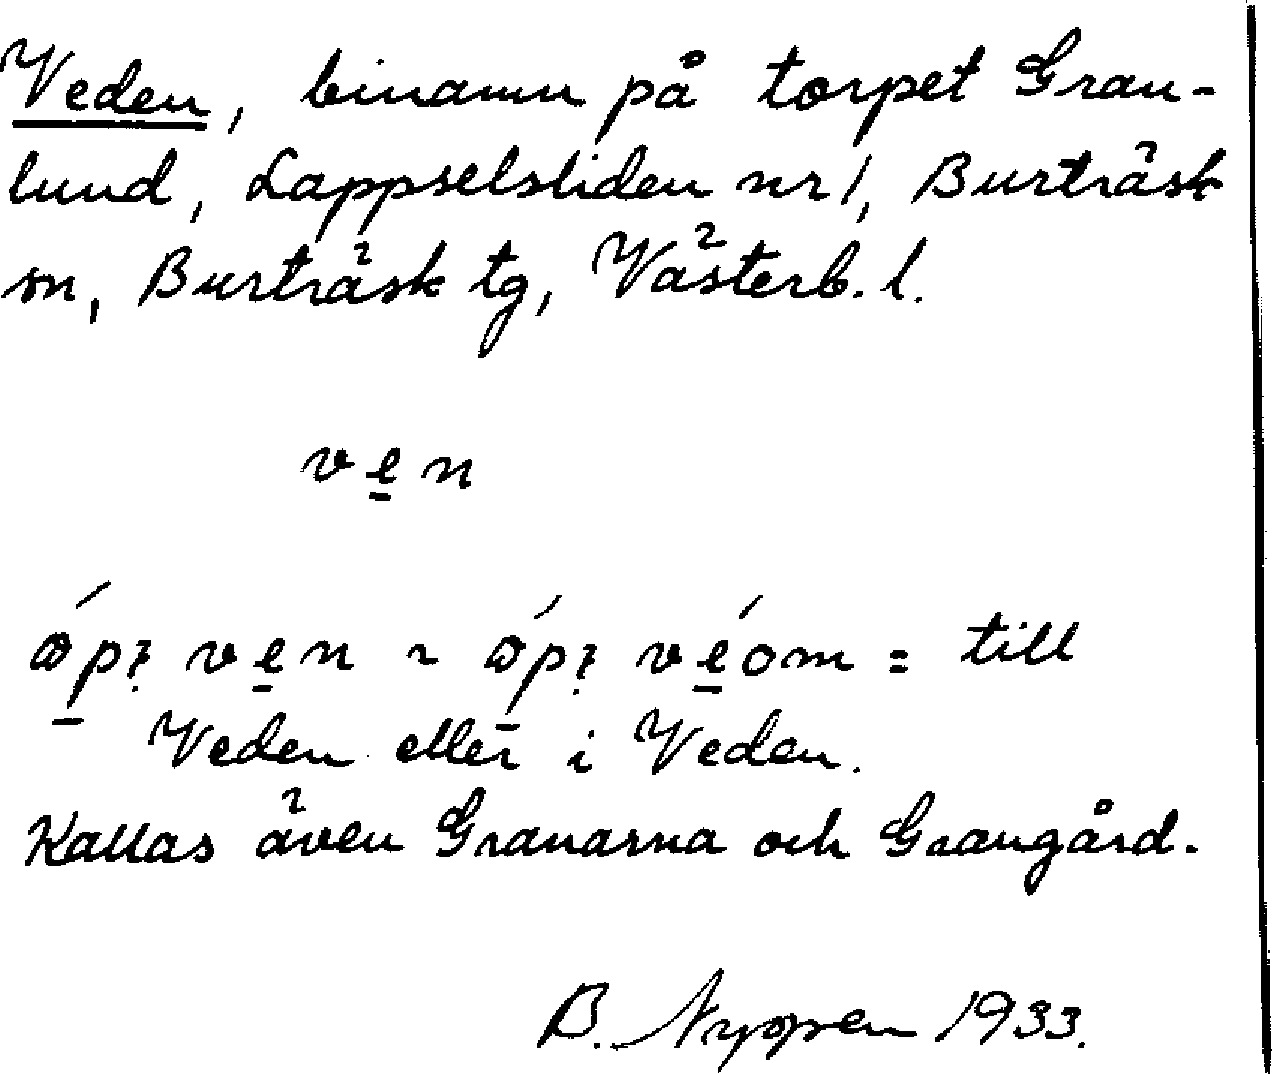 Veden, binamn på torpet Gran-
lund, Lappselsliden nr 1, Burträsk
sn, Burträsk tg, Västerb. l.
ve̲n
ve̲n ~ = till
Veden eller i Veden.
Kallas även Granarna och Grangård.
B. 1933.